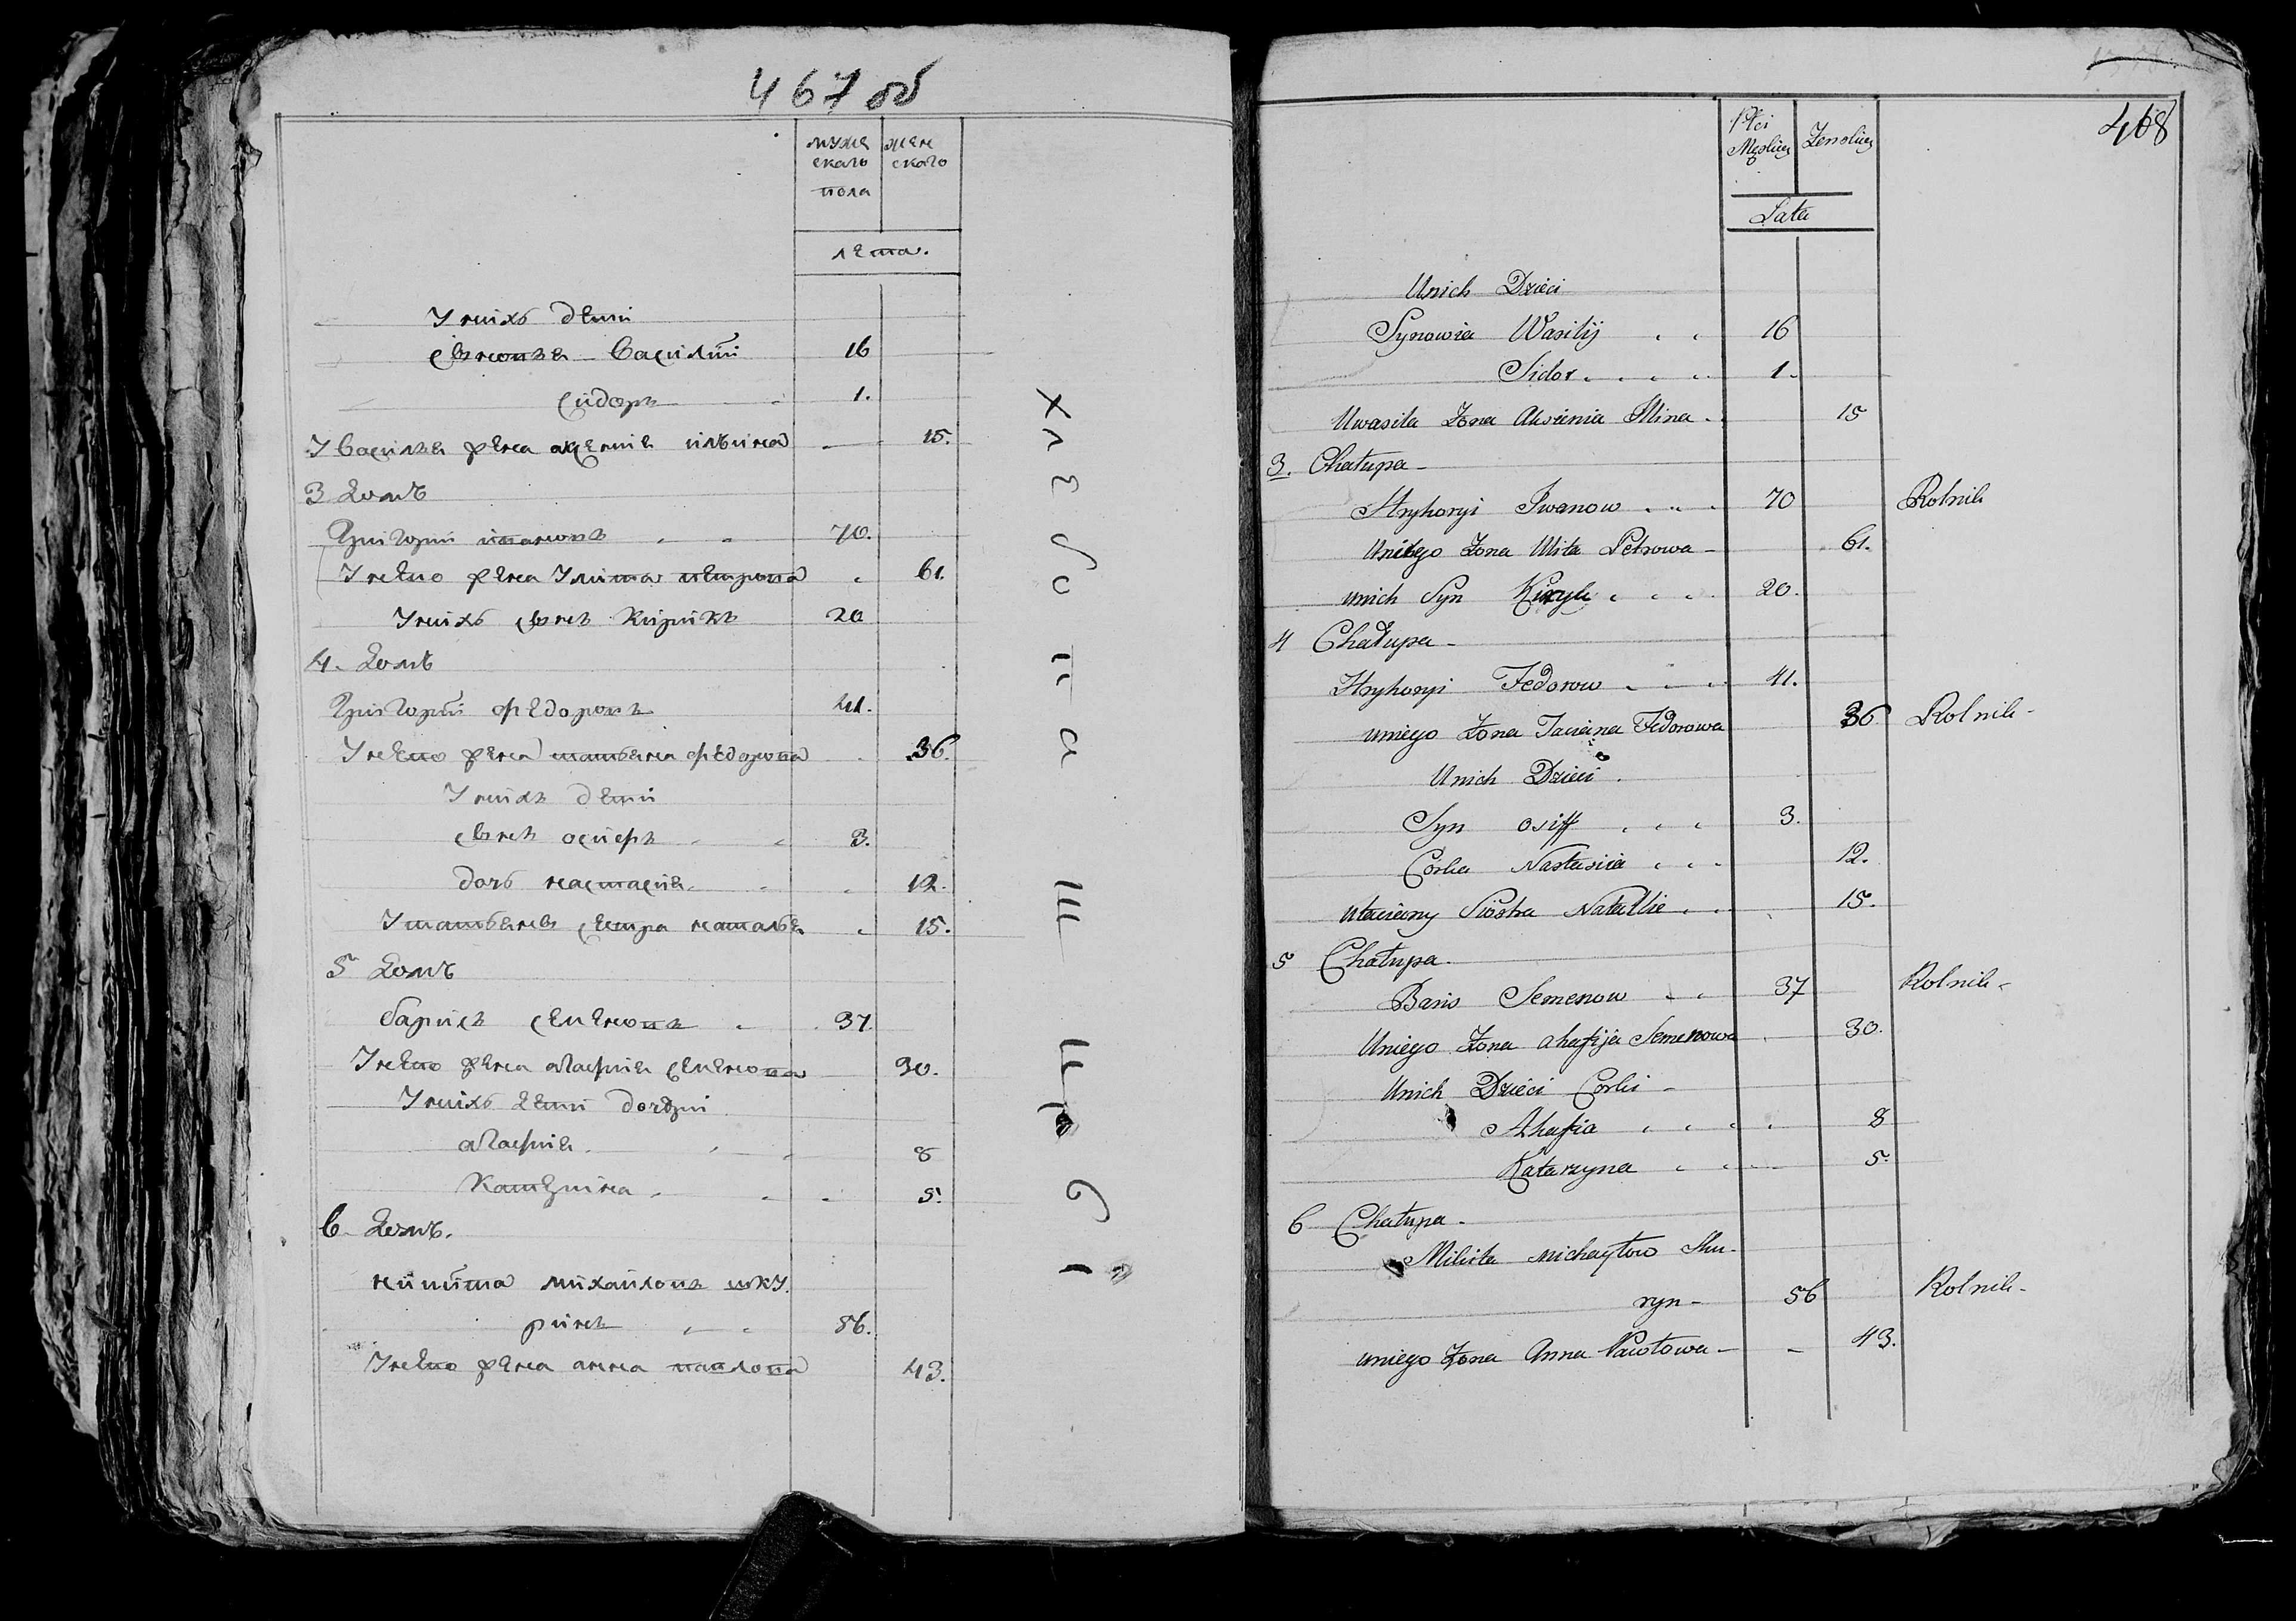 467 об
мужескаго пола
женскаго
лета.
У нихъ дети
сыновья Василий 16
Сидоръ 1.
У Василья жена аксения ильина 15.
3 Домъ
Григорий ивановъ 70.
У него жена Улита петрова 61.
У нихъ сынъ Кирилъ 20
4. Домъ
Григорий федоровъ 41.
У него жена татьяна федорова 36.
У нихъ дети
сынъ осифъ 3.
дочь настасия 12.
У татьяны сестра наталья 15.
5 Домъ
барисъ семеновъ 37.
У него жена агафия семенова 30.
У нихъ дети дочери
агафия 8
Катерина 5.
6 Домъ.
никита михаиловъ шку.
ринъ 56.
У него жена анна павлова 43.
хлебопашцы
468
Płci Męskiej Zenskiej
Lata
Unich Dzieci
Synowia Wasilij 16
Sidor 1.
Uwasila Żona Aksienia Ilina 15
3. Chałupa
Hryhoryi Iwanow 70 Rolnik
Uniego Żona Ulita Petrowa 61.
unich Syn Kiryłł 20.
4 Chałupa
Hryhoryi Fedorow 41.
uniego Żona Taciana Fedorowa 36 Rolnik
Unich Dzieci.
Syn osiff 3.
Corka Nastasiia 12.
utaciany Siostra Natallie 15.
5 Chałupa.
Baris Semenow 37 Rolnik
Uniego Żona ahafija Semenowa 30.
Unich Dzieci Corki
Ahafia 8
Katarzyna 5.
6 Chałupa.
Mikita michayłow Sku-
ryn 56 Rolnik
uniego Żona Anna Pawłowa 43.